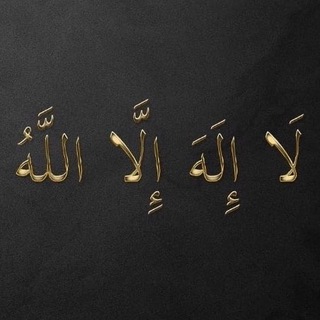 لَا إِلَهَ إِلَّا اللَّهُ